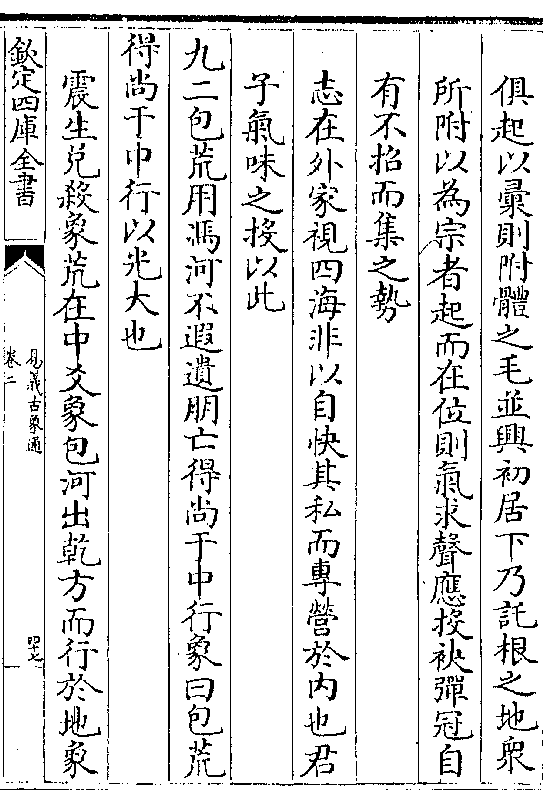 俱起以彚則附體之毛並興初居下乃託根之地衆
所附以為宗者起而在位則氣求聲應投袂彈冠自
有不招而集之勢
志在外家視四海非以自快其私而專營於内也君
子氣味之投以此
九二包荒用馮河不遐遺朋亡得尚于中行象曰包荒
得尚于中行以光大也
震生兌殺象荒在中爻象包河出乾方而行於地象
欽定四庫全書
易義古象通
卷二